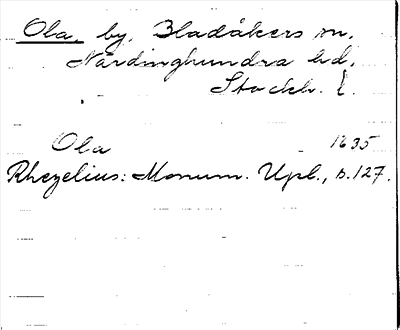 Ola, by, Bladåkers sn,
Närdinghundra hd,
Stockh. l.
Ola 1635
Rhezelius: Monum. Upl., s. 127.